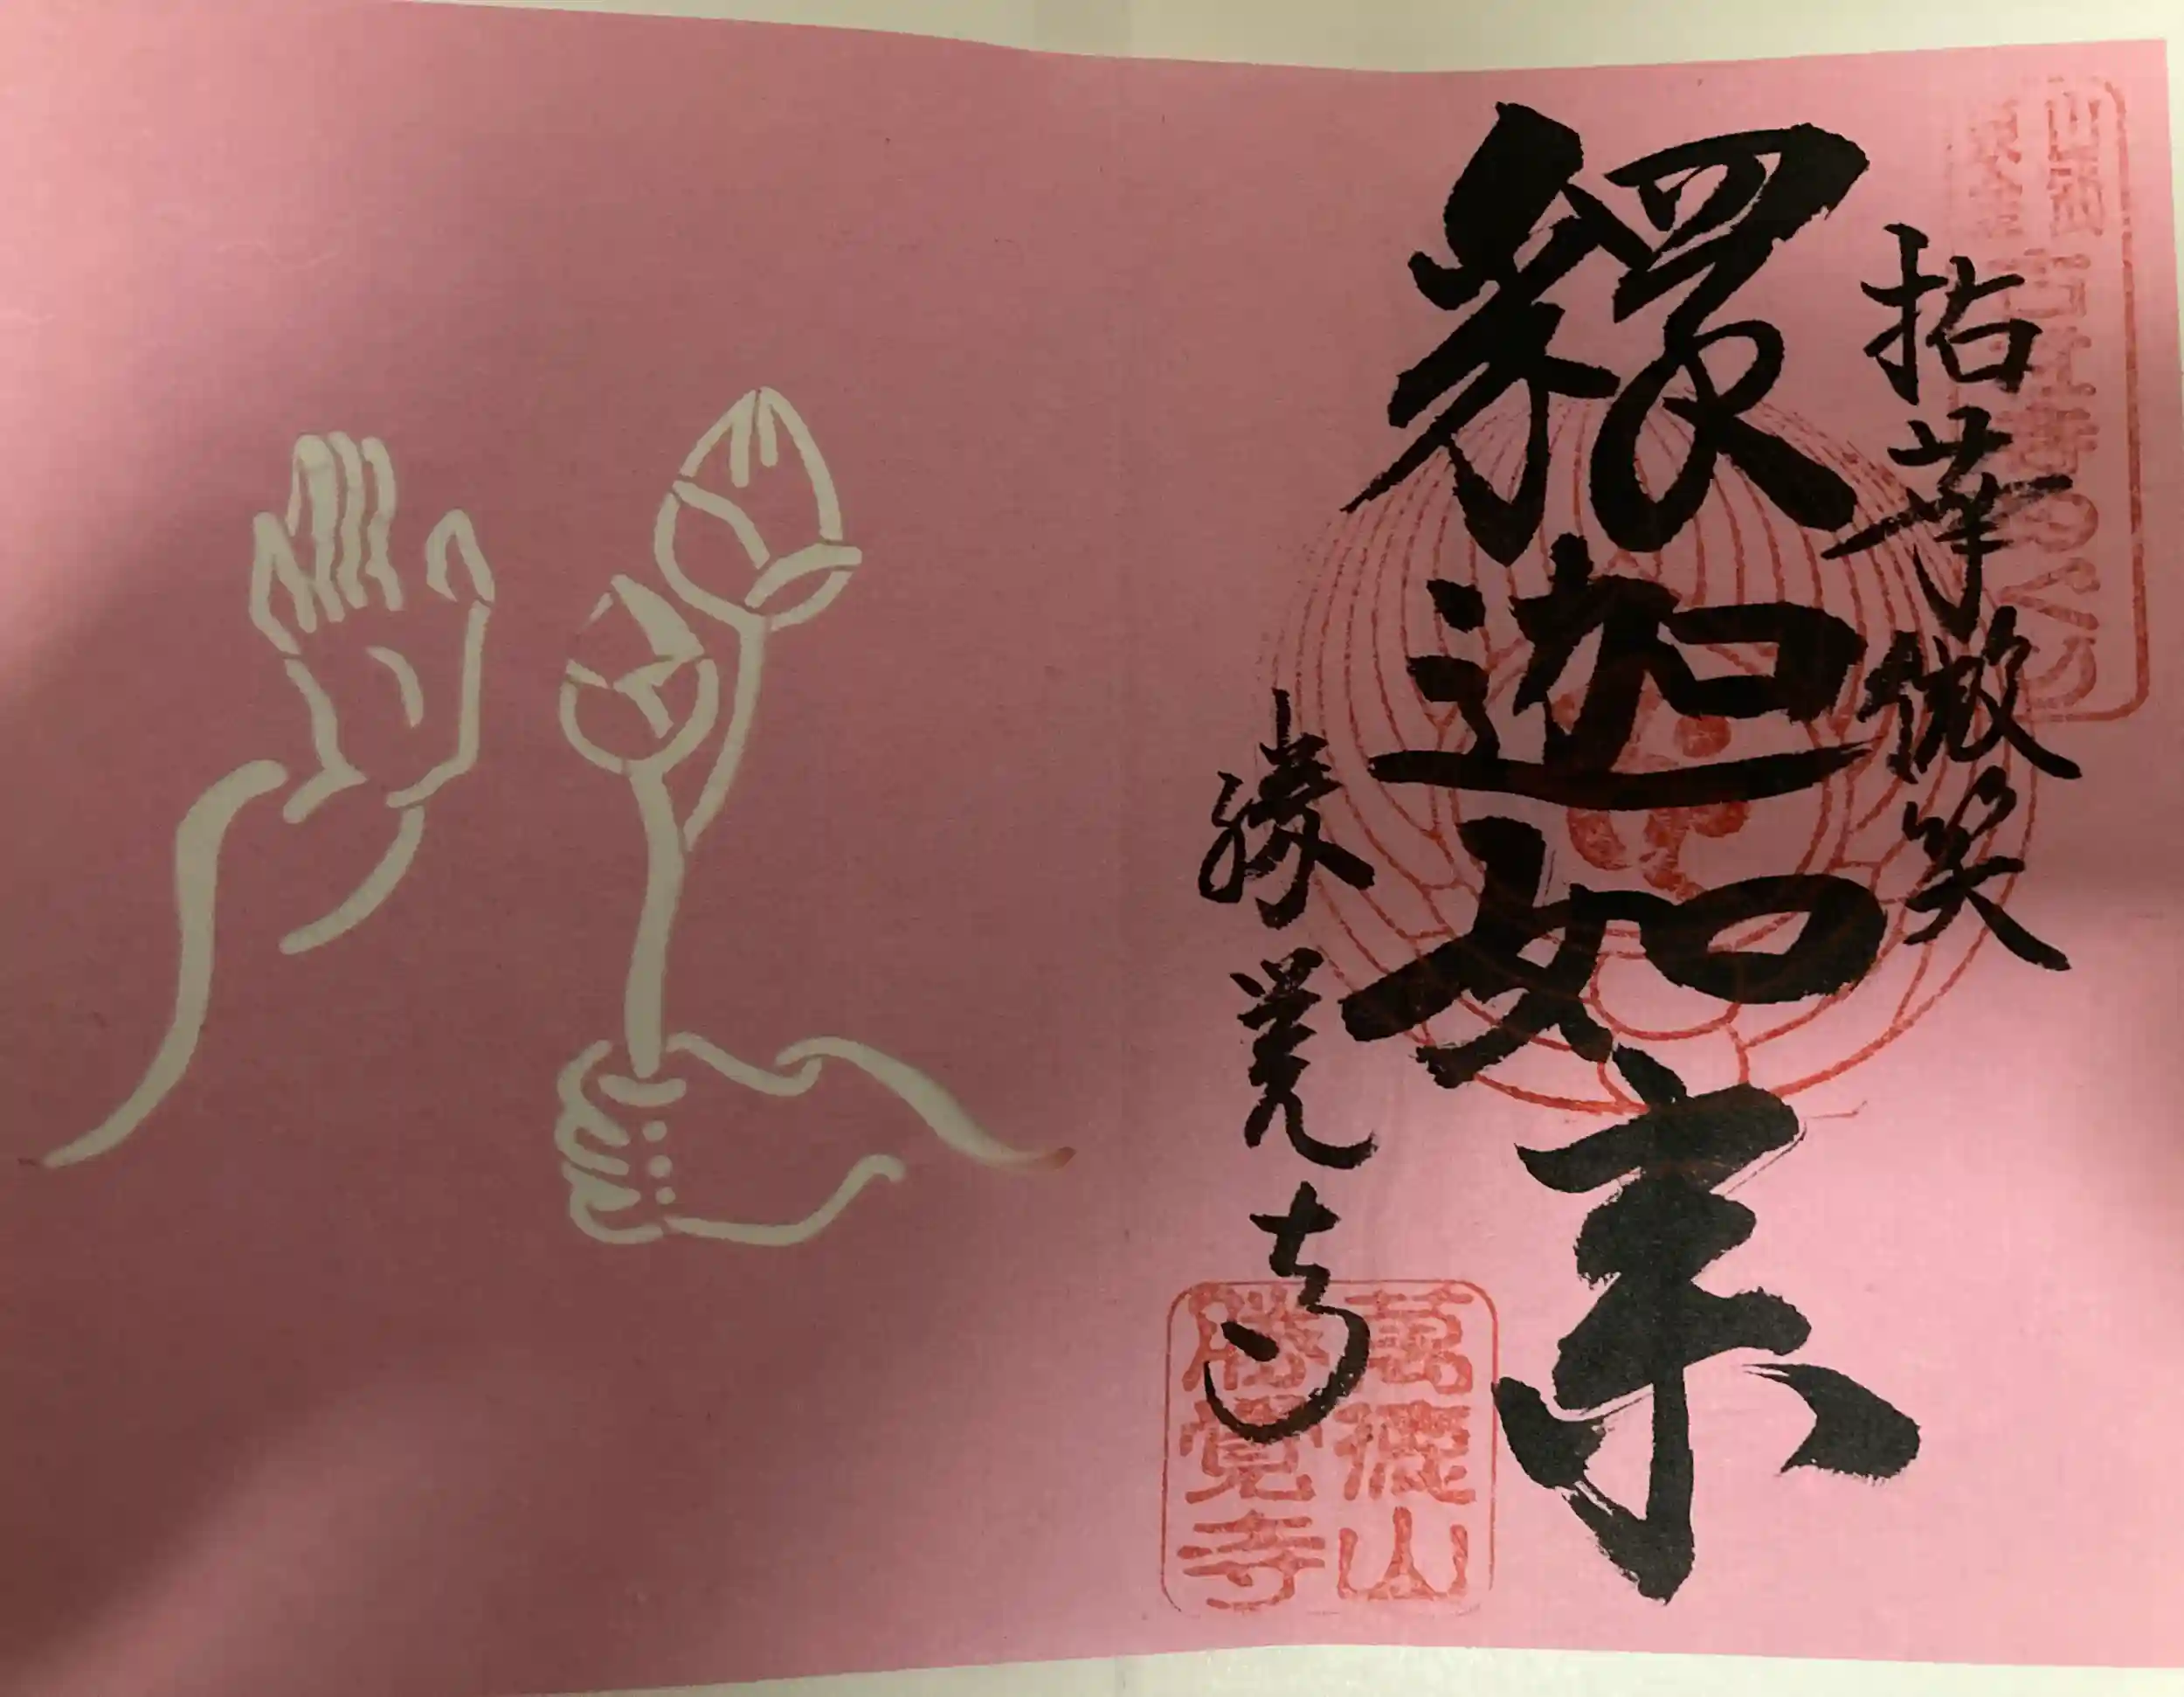 拈華微笑
釋迦如来
勝覚寺
萬徳山
勝覚寺